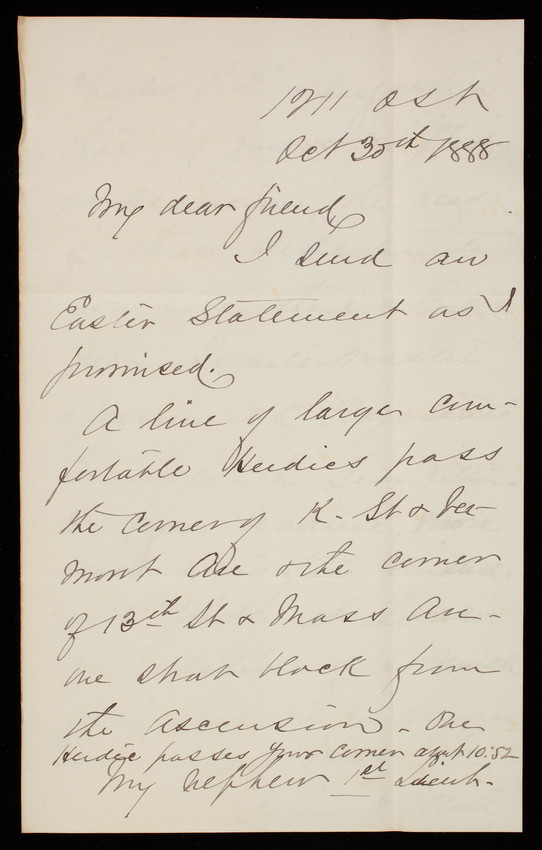 1711 Q St
Oct 30th 1888
My dear friend,
I send an
Easter Statement as I
promised.
A line of large com-
fortable Herdics pass
the corner of K. St & Ver-
mont Ave & the corner
of 13th St & Mass Av-
one short block from
the Ascension. One
Herdic passes your corner about 10:52
My Nephew 1st Lieut.